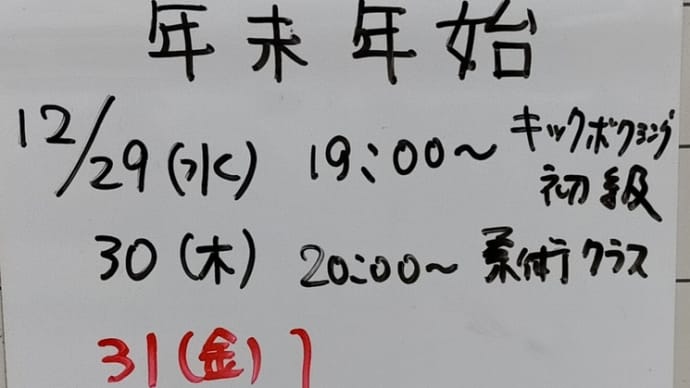 年末年始
12/29(水) 19:00～ キックボクシング
初級
30(木) 20:00～ 柔術クラス
31(金)